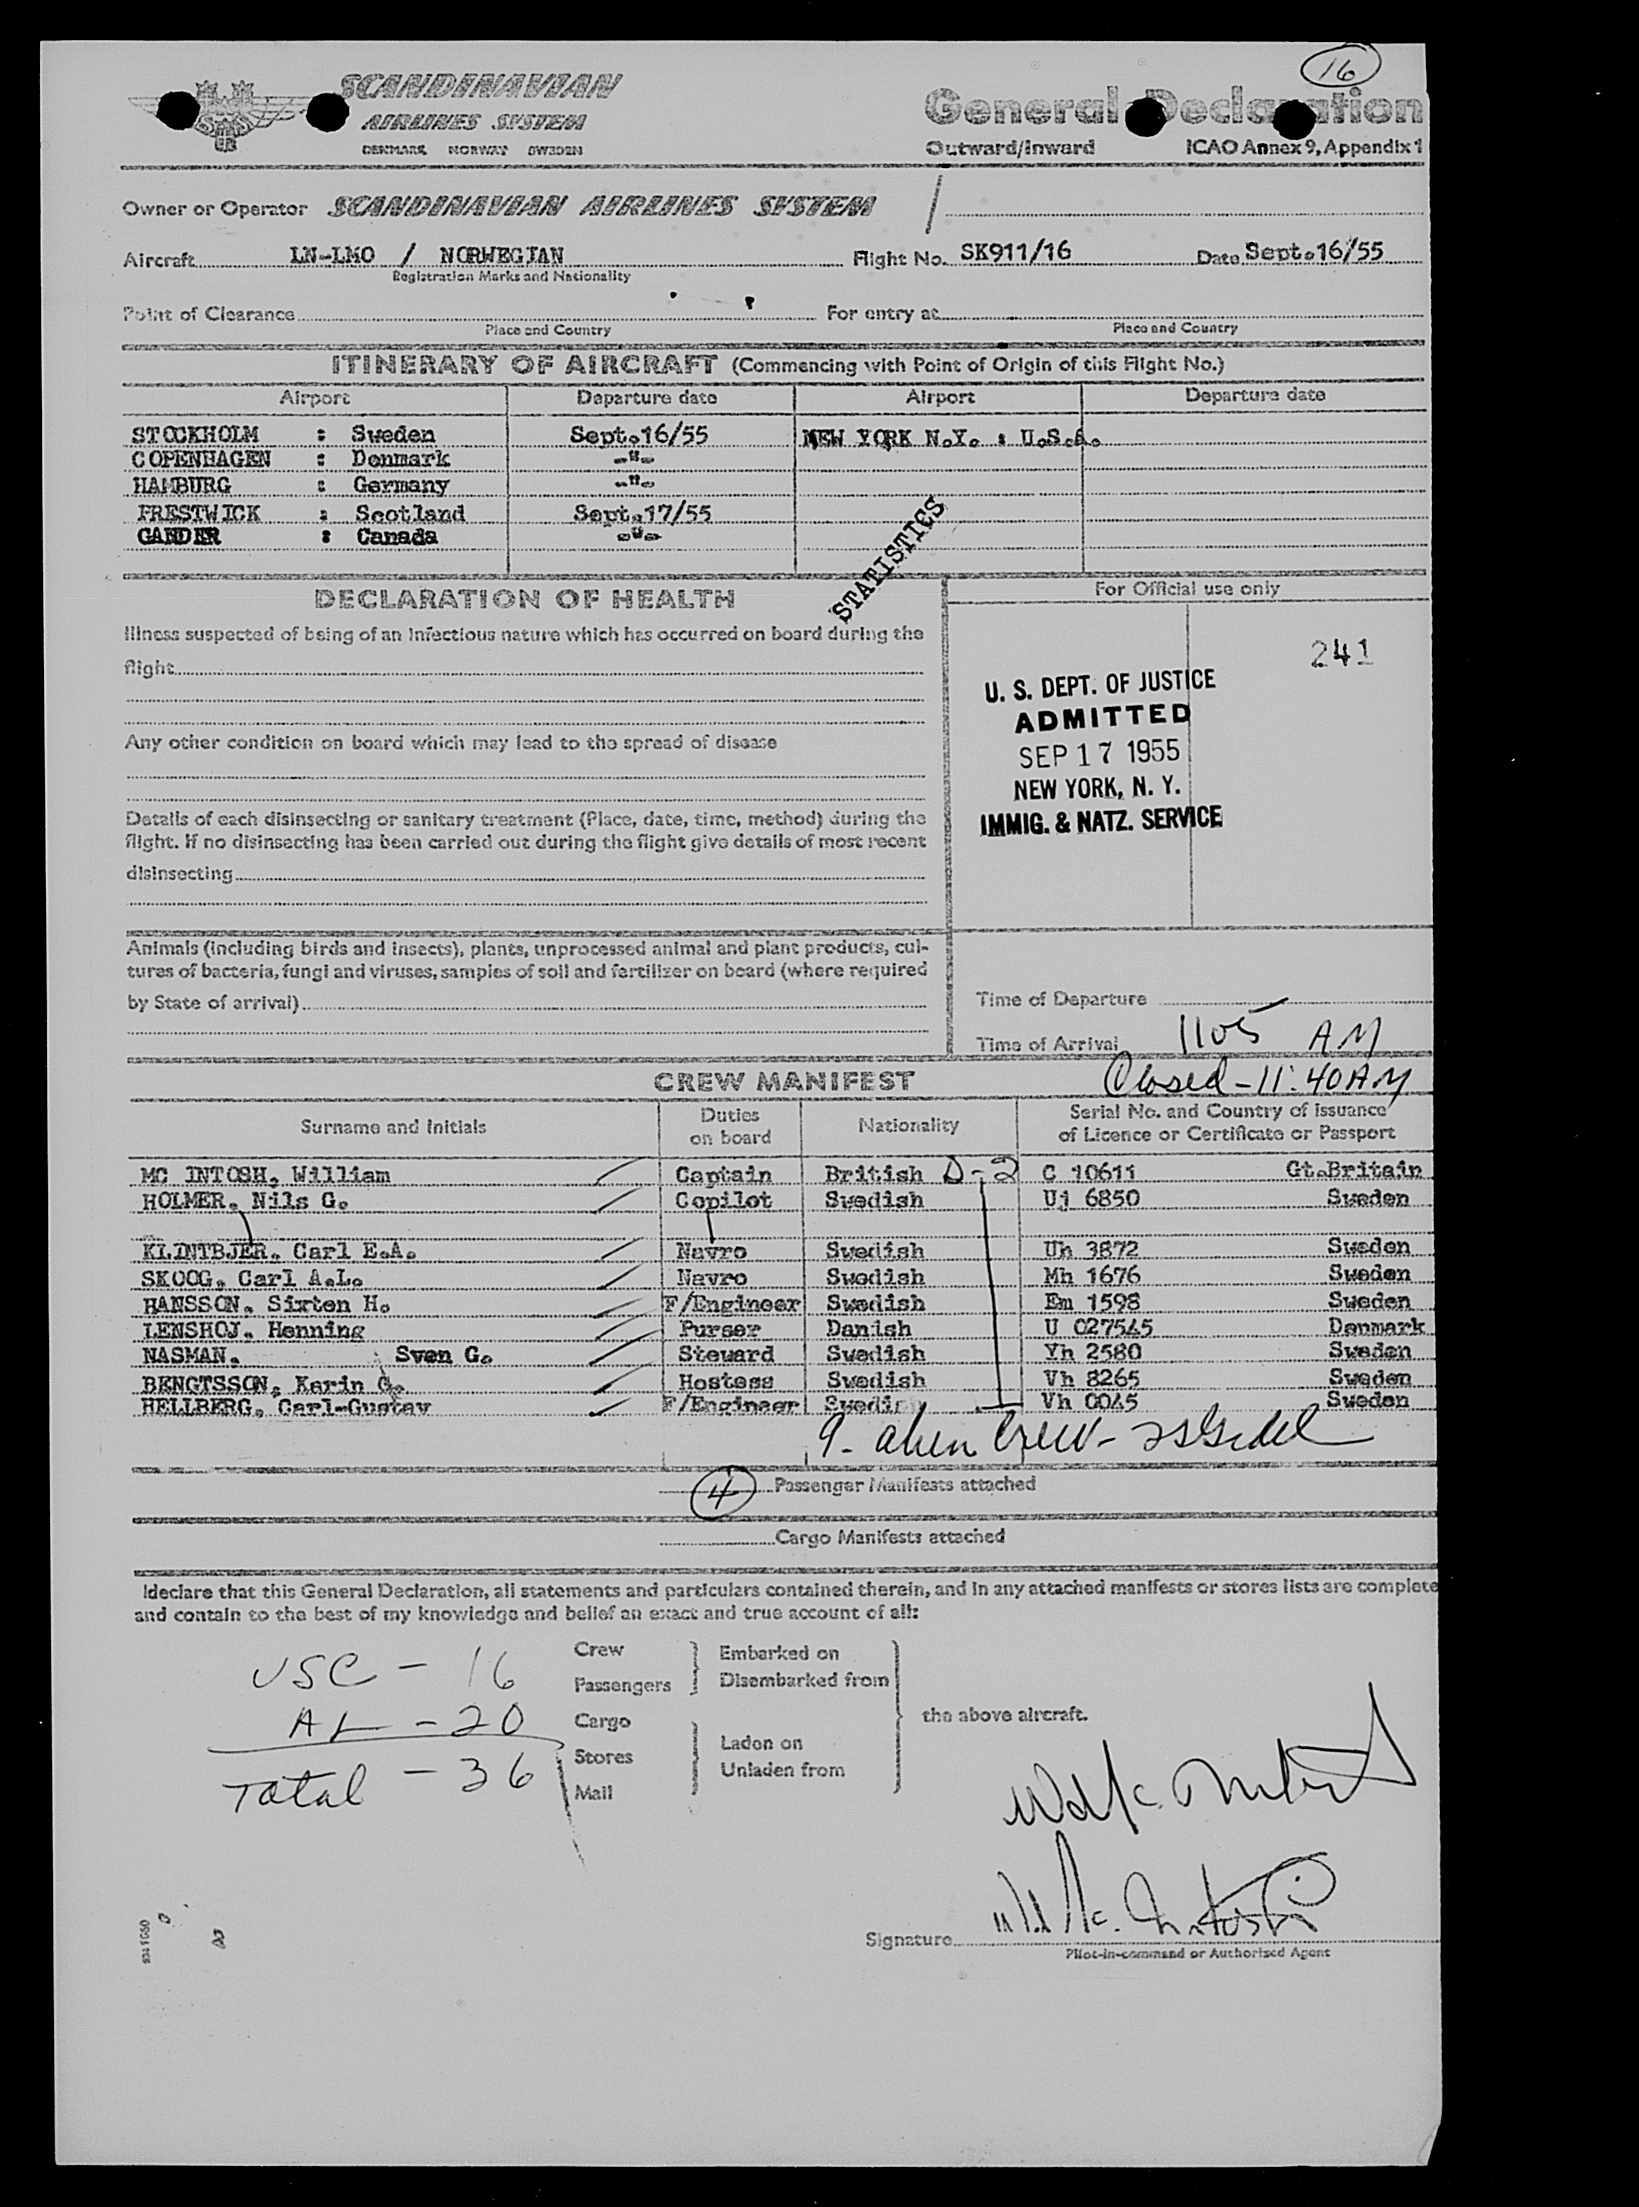 16
SCANDINAVIAN
AIRLINES SYSTEM
DENMARK NORWAY SWEDEN
General Declaration
Outward/Inward ICAO Annex 9, Appendix 1
Owner or Operator SCANDINAVIAN AIRLINES SYSTEM
Aircraft LN-LMO / NORWEGIAN Flight No. SK911/16 Date Sept.16/55
Registration Marks and Nationality
Point of Clearance For entry at
Place and Country Place and Country
ITINERARY OF AIRCRAFT (Commencing with Point of Origin of this Flight No.)
Airport Departure date Airport Departure date
STOCKHOLM : Sweden Sept.16/55 NEW YORK N.Y. : U.S.A.
COPENHAGEN : Denmark -"-
HAMBURG : Germany -"-
PRESTWICK : Scotland Sept.17/55
GANDER : Canada -"-
STATISTICS
DECLARATION OF HEALTH
For Official use only
Illness suspected of being of an infectious nature which has occurred on board during the
flight
241
U. S. DEPT. OF JUSTICE
ADMITTED
SEP 17 1955
NEW YORK, N. Y.
IMMIG. & NATZ. SERVICE
Any other condition on board which may lead to the spread of disease
Details of each disinsecting or sanitary treatment (Place, date, time, method) during the
flight. If no disinsecting has been carried out during the flight give details of most recent
disinsecting
Animals (including birds and insects), plants, unprocessed animal and plant products, cul-
tures of bacteria, fungi and viruses, samples of soil and fertilizer on board (where required
by State of arrival)
Time of Departure
Time of Arrival 1105 AM
Closed - 11:40 AM
CREW MANIFEST
Surname and Initials Duties on board Nationality Serial No. and Country of issuance of Licence or Certificate or Passport
MC INTOSH, William Captain British D-2 C 10611 Gt.Britain
HOLMER, Nils G. Copilot Swedish Uj 6850 Sweden
KLINTBJER, Carl E.A. Navro Swedish Uh 3872 Sweden
SKOOG, Carl A.L. Navro Swedish Mh 1676 Sweden
HANSSON, Sixten H. F/Engineer Swedish Em 1598 Sweden
LENSHOJ, Henning Purser Danish U 027545 Denmark
NASMAN, Sven G. Steward Swedish Yh 2580 Sweden
BENGTSSON, Karin G. Hostess Swedish Vh 8265 Sweden
HELLBERG, Carl-Gustav F/Engineer Swedish Vh 0045 Sweden
9 - alien crew -
4 Passenger Manifests attached
Cargo Manifests attached
I declare that this General Declaration, all statements and particulars contained therein, and in any attached manifests or stores lists are complete
and contain to the best of my knowledge and belief an exact and true account of all:
USC - 16
AL - 20
Total - 36
Crew
Passengers
Cargo
Stores
Mail
Embarked on
Disembarked from
Laden on
Unladen from
the above aircraft.
Wm Mc Intosh
Wm Mc Intosh
Signature
Pilot-in-command or Authorized Agent